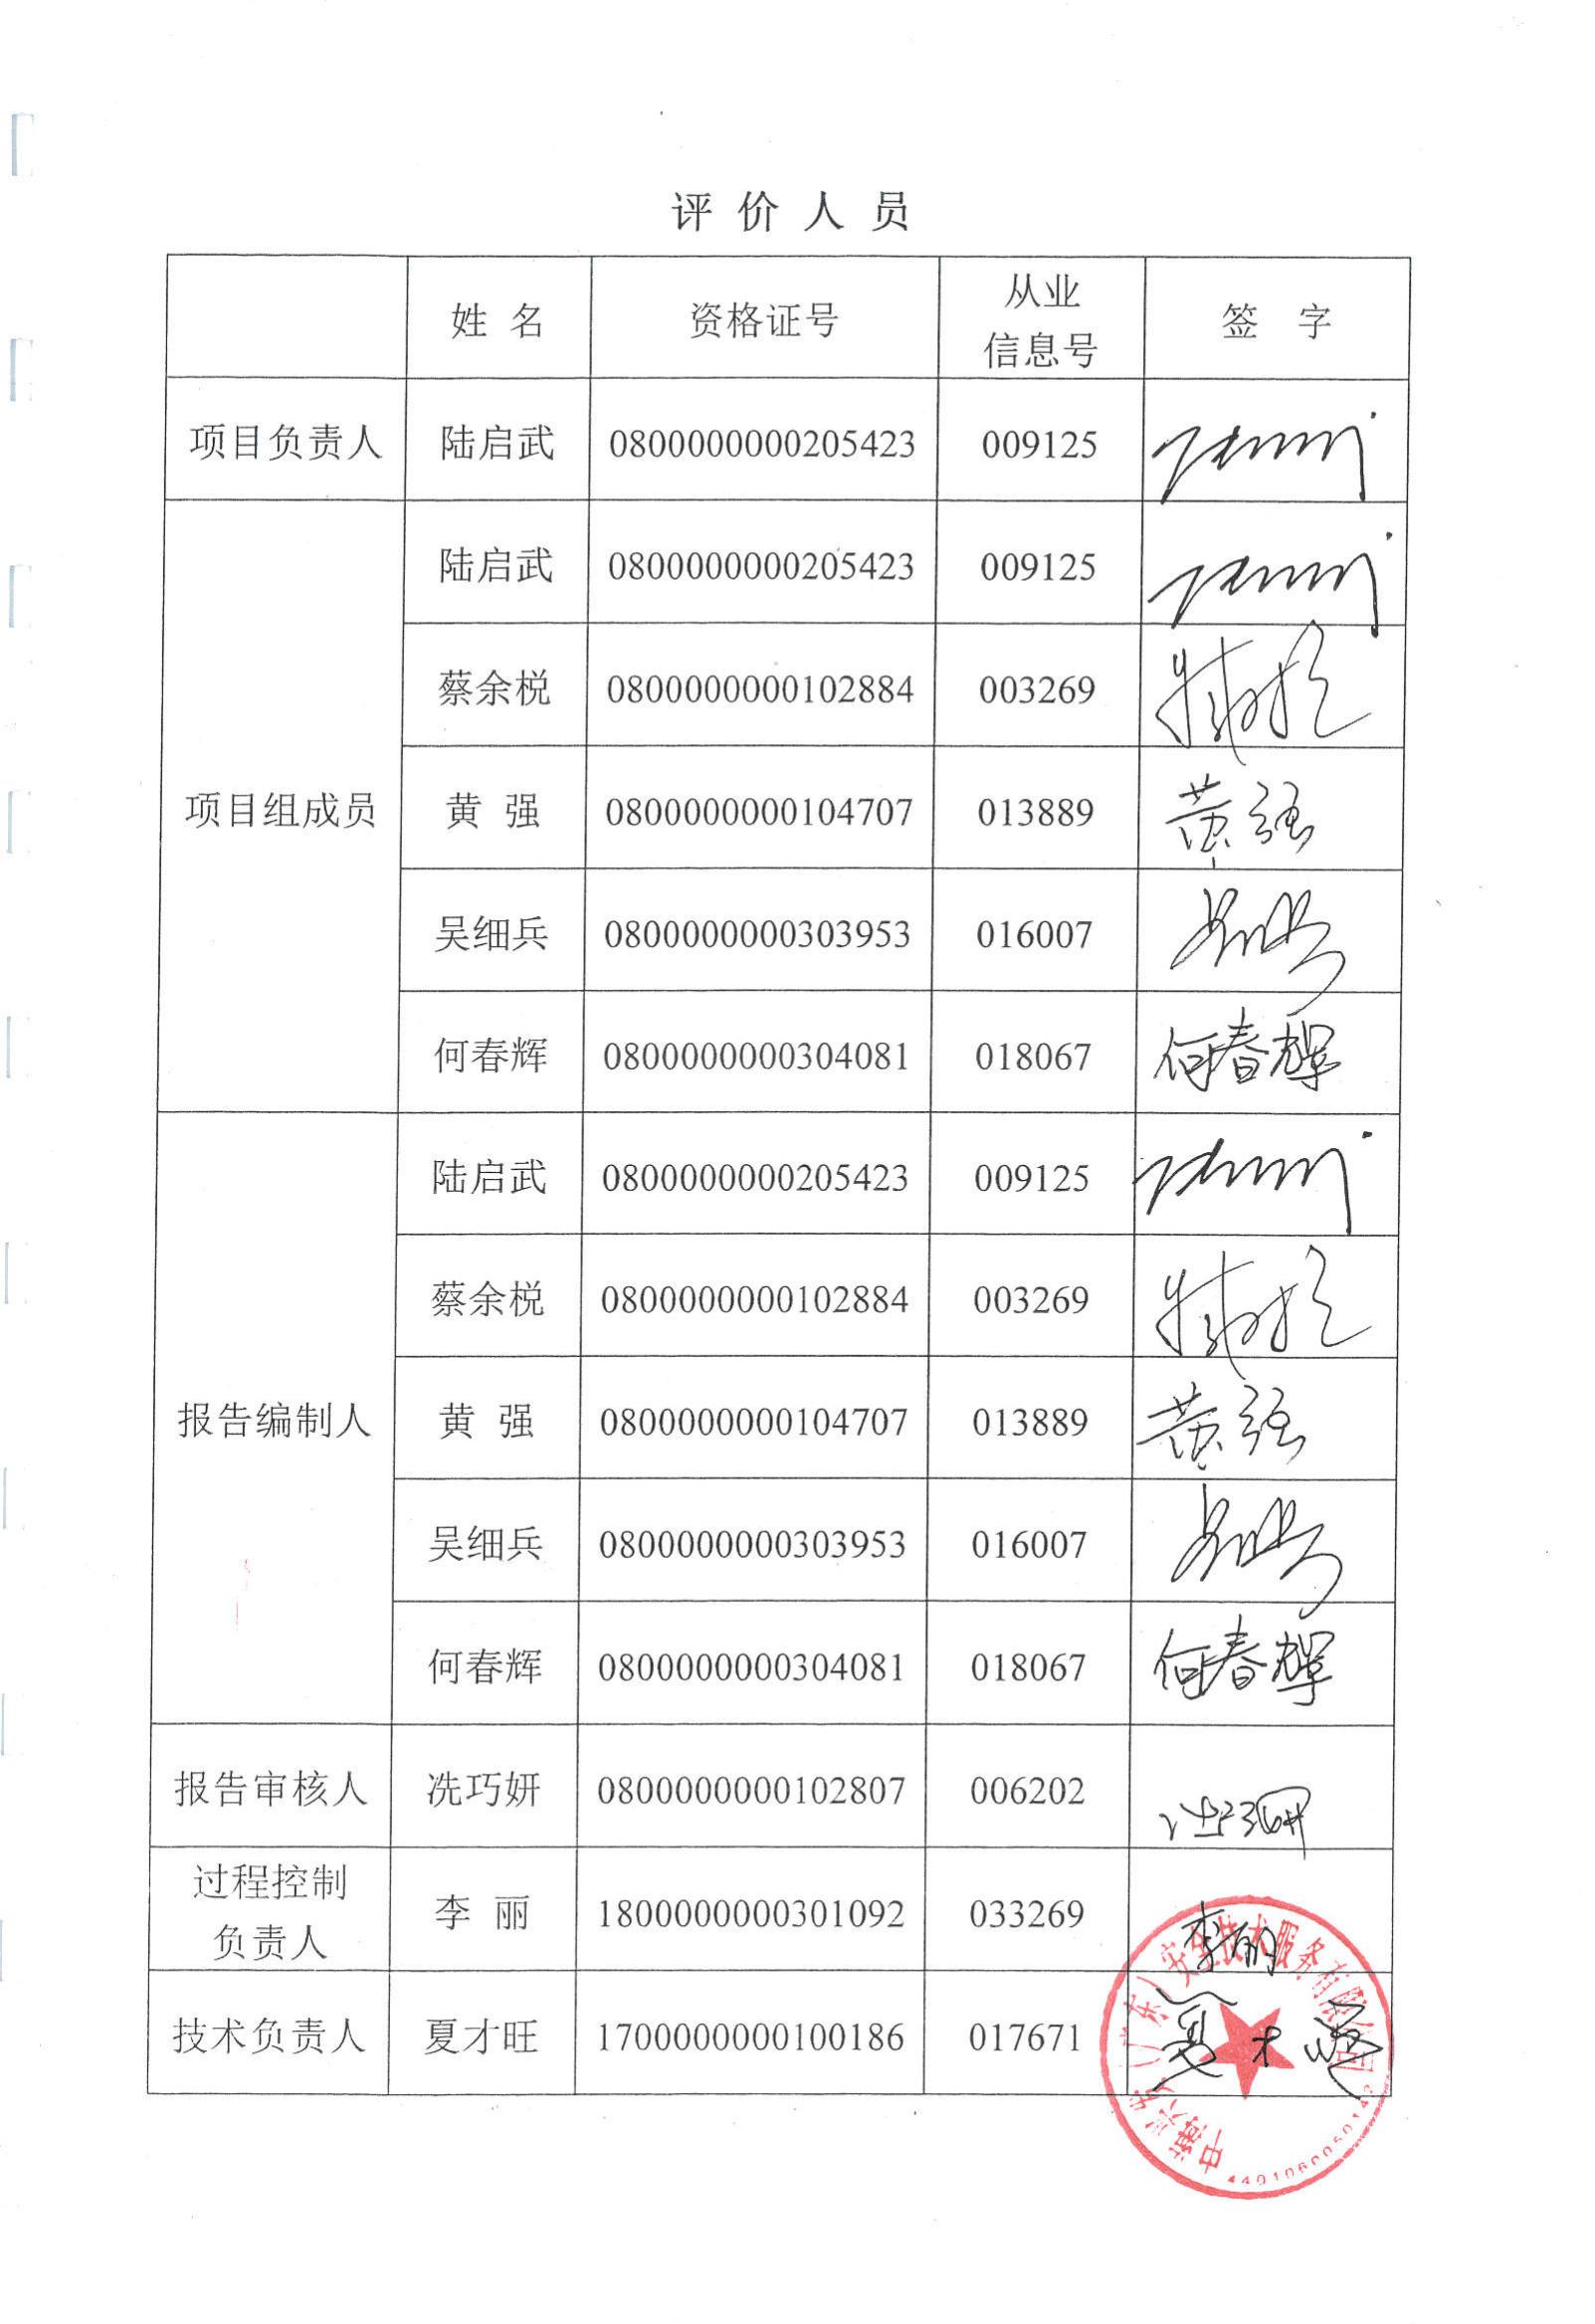 评价人员
姓名 资格证号 从业信息号 签字
项目负责人 陆启武 0800000000205423 009125
项目组成员 陆启武 0800000000205423 009125
蔡余棁 0800000000102884 003269
黄强 0800000000104707 013889 黄强
吴细兵 0800000000303953 016007
何春辉 0800000000304081 018067 何春辉
报告编制人 陆启武 0800000000205423 009125
蔡余棁 0800000000102884 003269
黄强 0800000000104707 013889 黄强
吴细兵 0800000000303953 016007
何春辉 0800000000304081 018067 何春辉
报告审核人 冼巧妍 0800000000102807 006202
过程控制负责人 李丽 1800000000301092 033269 李丽
技术负责人 夏才旺 1700000000100186 017671 夏才旺
安全技术服务有限公司